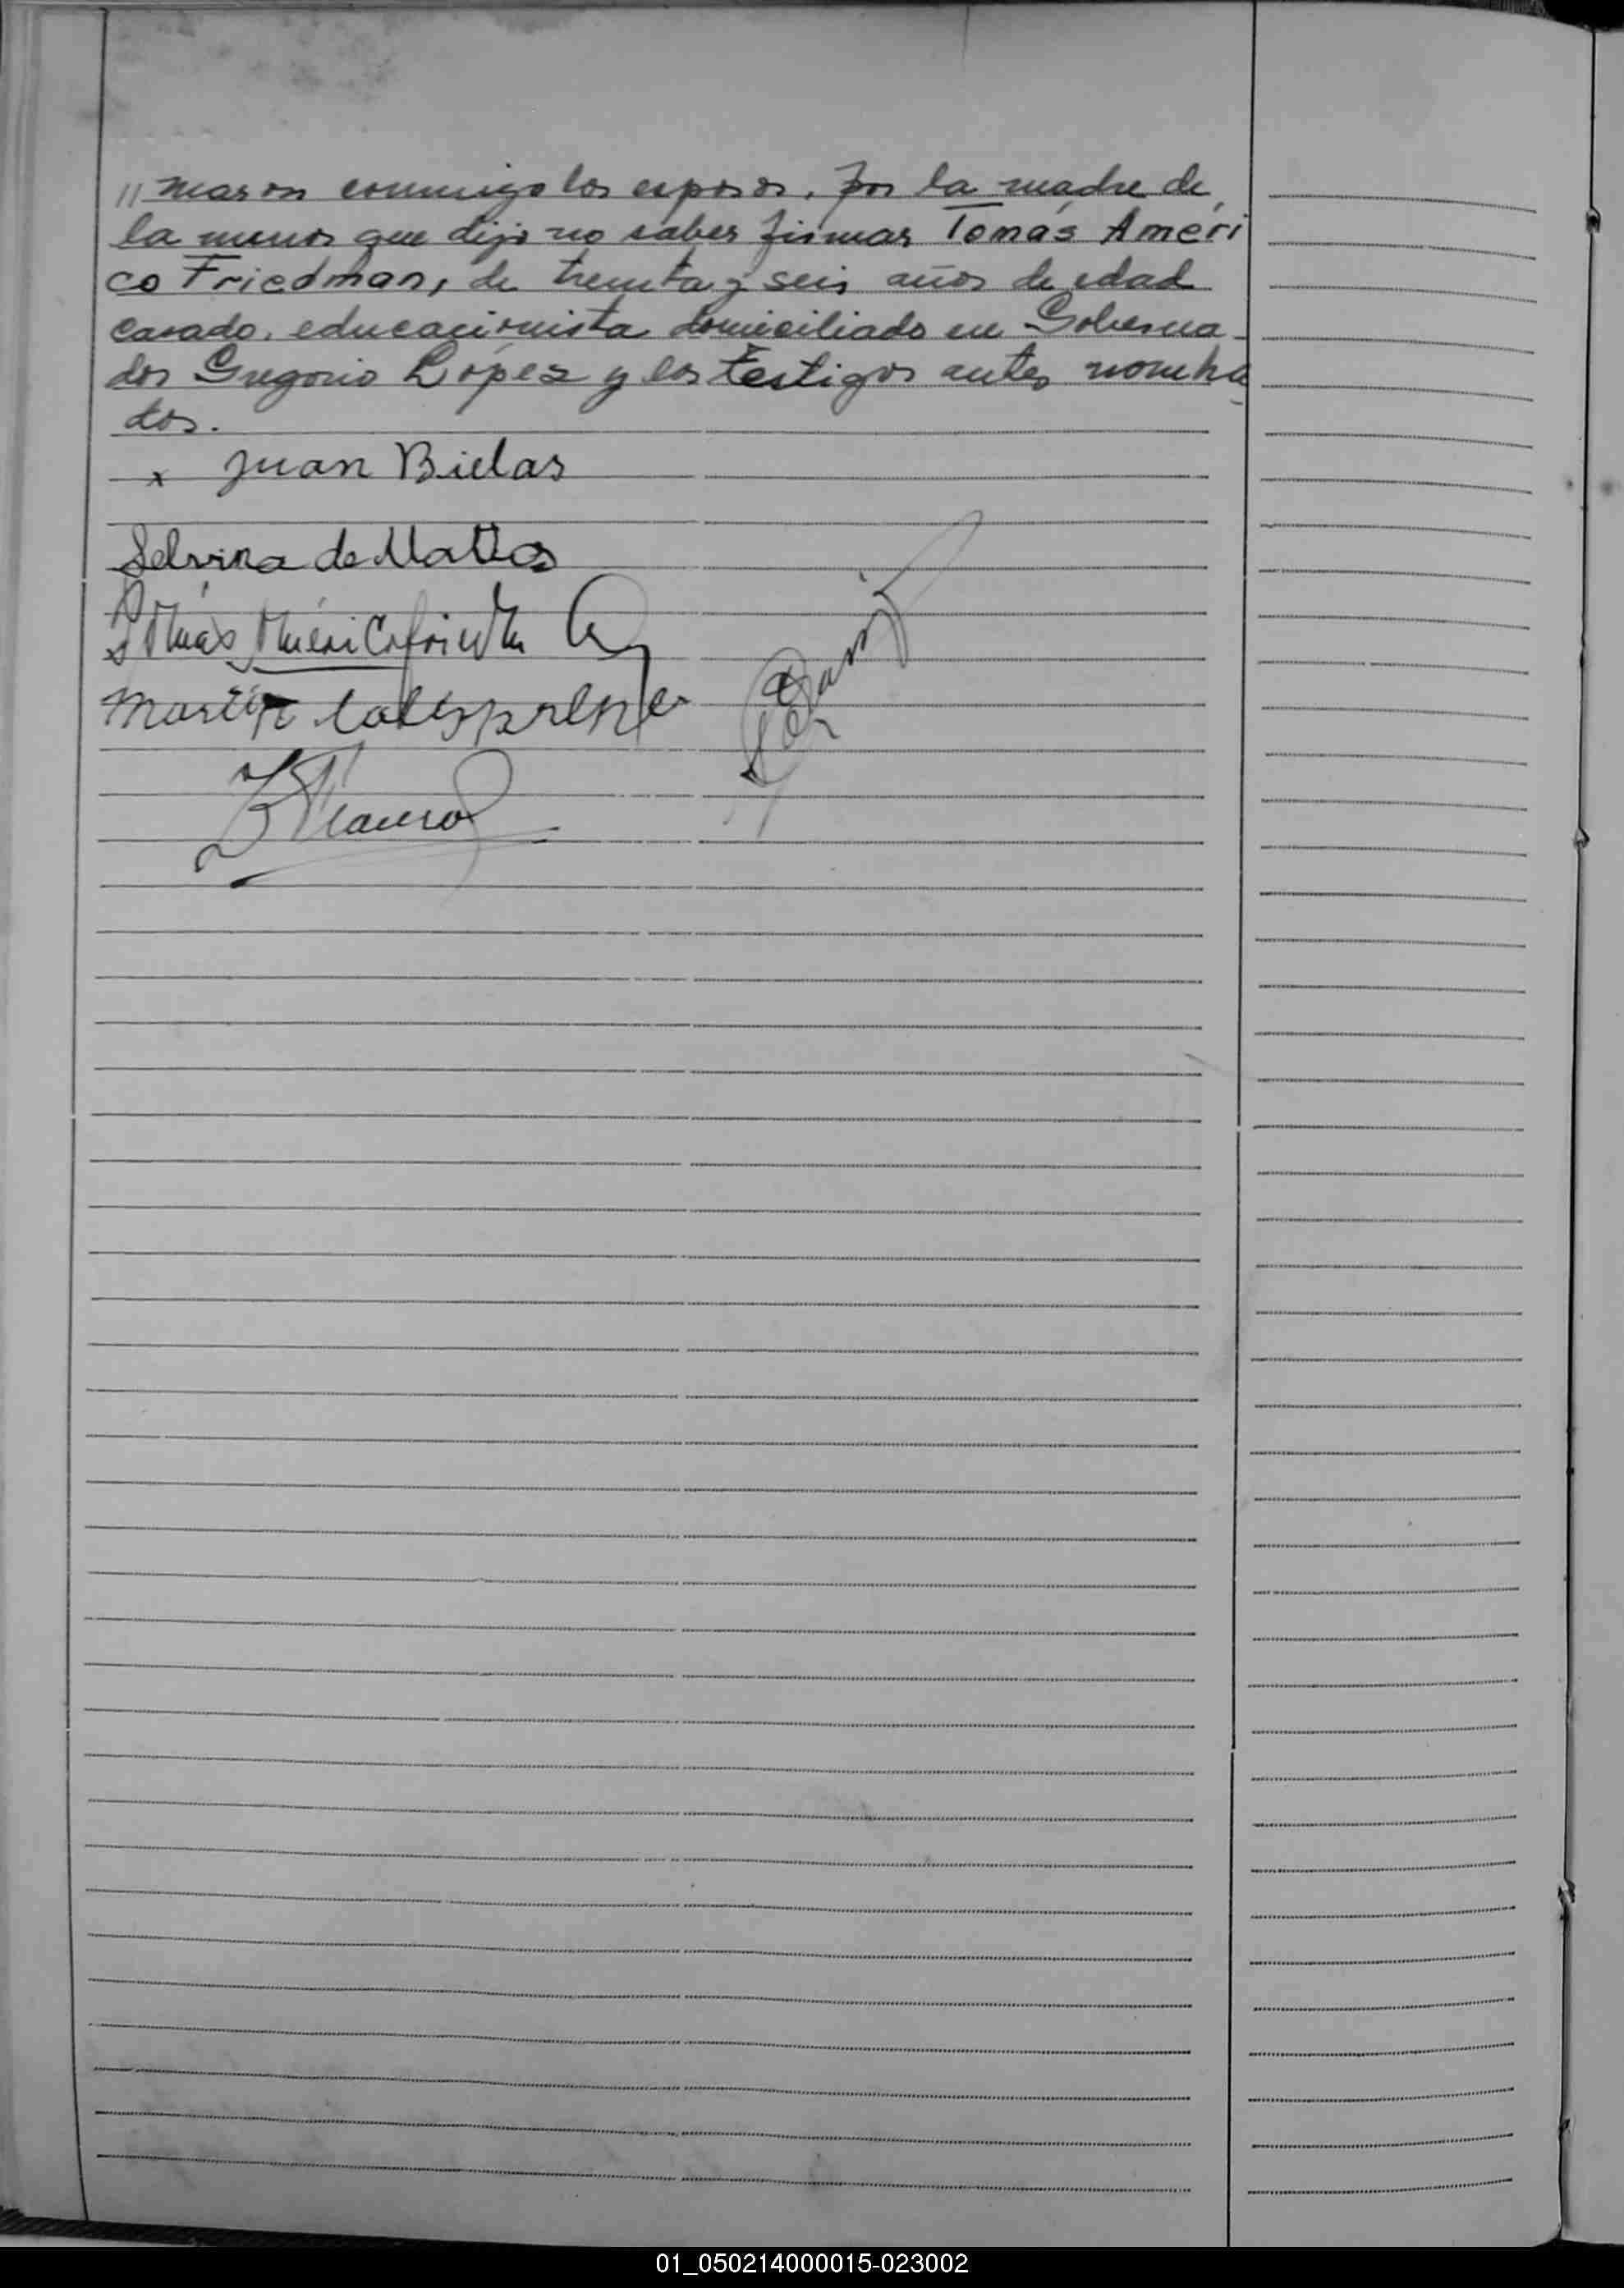 // maron conmigo los esposos, por la madre de
la menor que dijo no saber firmar Tomás Améri
co Friedman, de treinta y seis años de edad
casado, educacionista domiciliado en Goberna-
dor Gregorio López y los testigos antes nombra
dos.
x Juan Bielas
Selvina de Mattos
Martin
01_050214000015-023002